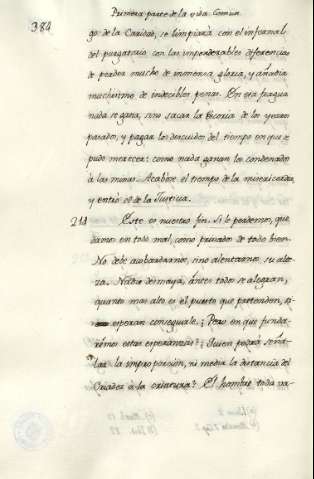 384
Primera parte de la vida. Comun
go de la Caridad, se limpiaria con el infernal
del purgatorio con las imponderables diferencias
de perder mucho de inmensa gloria, y añadir
muchisimo de indecibles penas. En esa fragua
nada se gana, sino sacar la escoria de los yerros
pasados, y pagar los descuidos del tiempo en que se
pudo merecer: como nada ganan los condenados
à las minas. Acabòse el tiempo de la misericordia,
y entrò el de la Justicia.
211 Este es nuestro fin. Si le perdemos, que
damos en todo mal, como privados de todo bien.
No debe acobardarnos, sino alentarnos, su alte
za. Nadie desmaya, àntes todos se alegran,
quanto mas alto es el puesto que pretenden, si
esperan conseguirle. ¿Pero en que funda-
rèmos estas esperanzas? ¿Quien podrá seña-
lar la improporcion, ni medir la distancia del
Criador à la criatura? El hombre todo va-